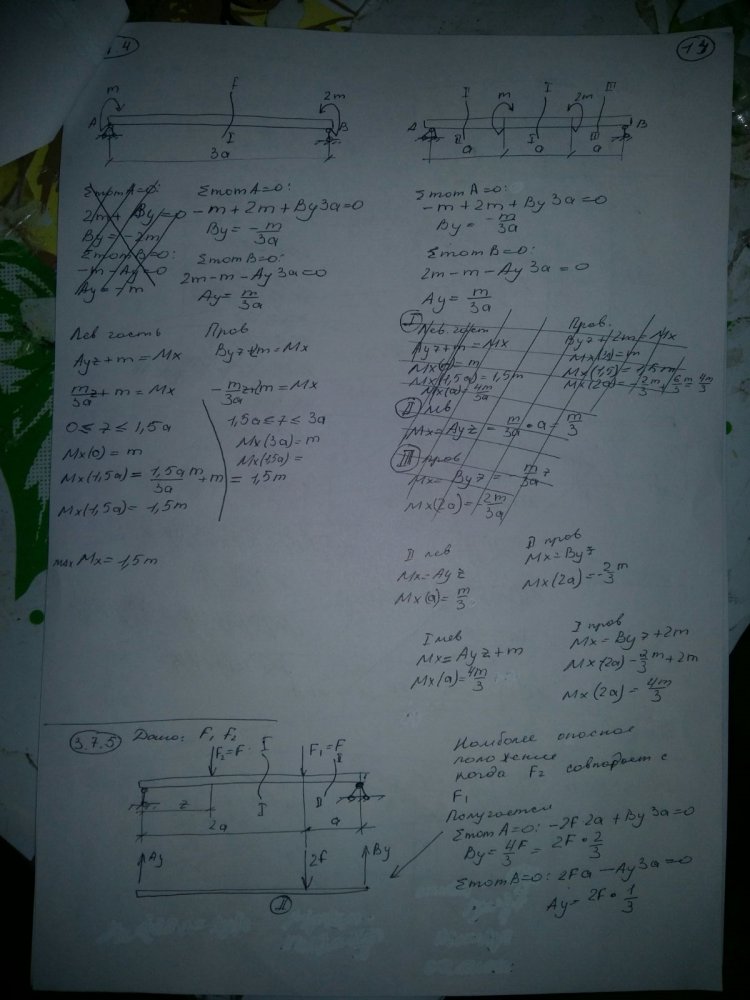 1.4
m F 2m
A B
I
3a
ΣmomA=0:
2m + By = 0
By = -2m
ΣmomB=0:
-m - Ay = 0
Ay = -m
ΣmomA=0:
-m + 2m + By 3a = 0
By = -m/3a
ΣmomB=0:
2m - m - Ay 3a = 0
Ay = m/3a
Лев часть
Ayz + m = Mx
mz/3a + m = Mx
0 ≤ z ≤ 1,5a
Mx(0) = m
Mx(1,5a) = 1,5a m/3a + m = 1,5m
Mx(1,5a) = 1,5m
max Mx = 1,5m
Прав
Byz + 2m = Mx
-mz/3a + 2m = Mx
1,5a ≤ z ≤ 3a
Mx(3a) = m
Mx(1,5a) =
14
II m I 2m III
A B
II I III
a a a
ΣmomA=0:
-m + 2m + By 3a = 0
By = -m/3a
ΣmomB=0:
2m - m - Ay 3a = 0
Ay = m/3a
I
Лев. част
Ayz + m = Mx
Mx(0) = m
Mx(1,5a) = 1,5m
Mx(a) = 4m/3a
Прав.
Byz + 2m = Mx
Mx(1,5) = 1,5m
Mx(2a) = -2m/3 + 6m/3 = 4m/3
II лев
Mx = Ayz = m/3a · a = m/3
III прав
Mx = Byz = m/3a z
Mx(2a) = -2m/3a
II лев
Mx = Ayz
Mx(a) = m/3
II прав
Mx = Byz
Mx(2a) = -2/3 m
I лев
Mx = Ayz + m
Mx(a) = 4m/3
I прав
Mx = Byz + 2m
Mx(2a) -2/3 m + 2m
Mx(2a) = 4m/3
3.7.5 Дано: F1, F2
F2=F I F1=F II
z I II
2a a
Ay 2F By
II
Наиболее опасное
положение
когда F2 совпадает с
F1
Получается
ΣmomA=0: -2F 2a + By 3a = 0
By = 4F/3 = 2F · 2/3
ΣmomB=0: 2Fa - Ay 3a = 0
Ay = 2F · 1/3